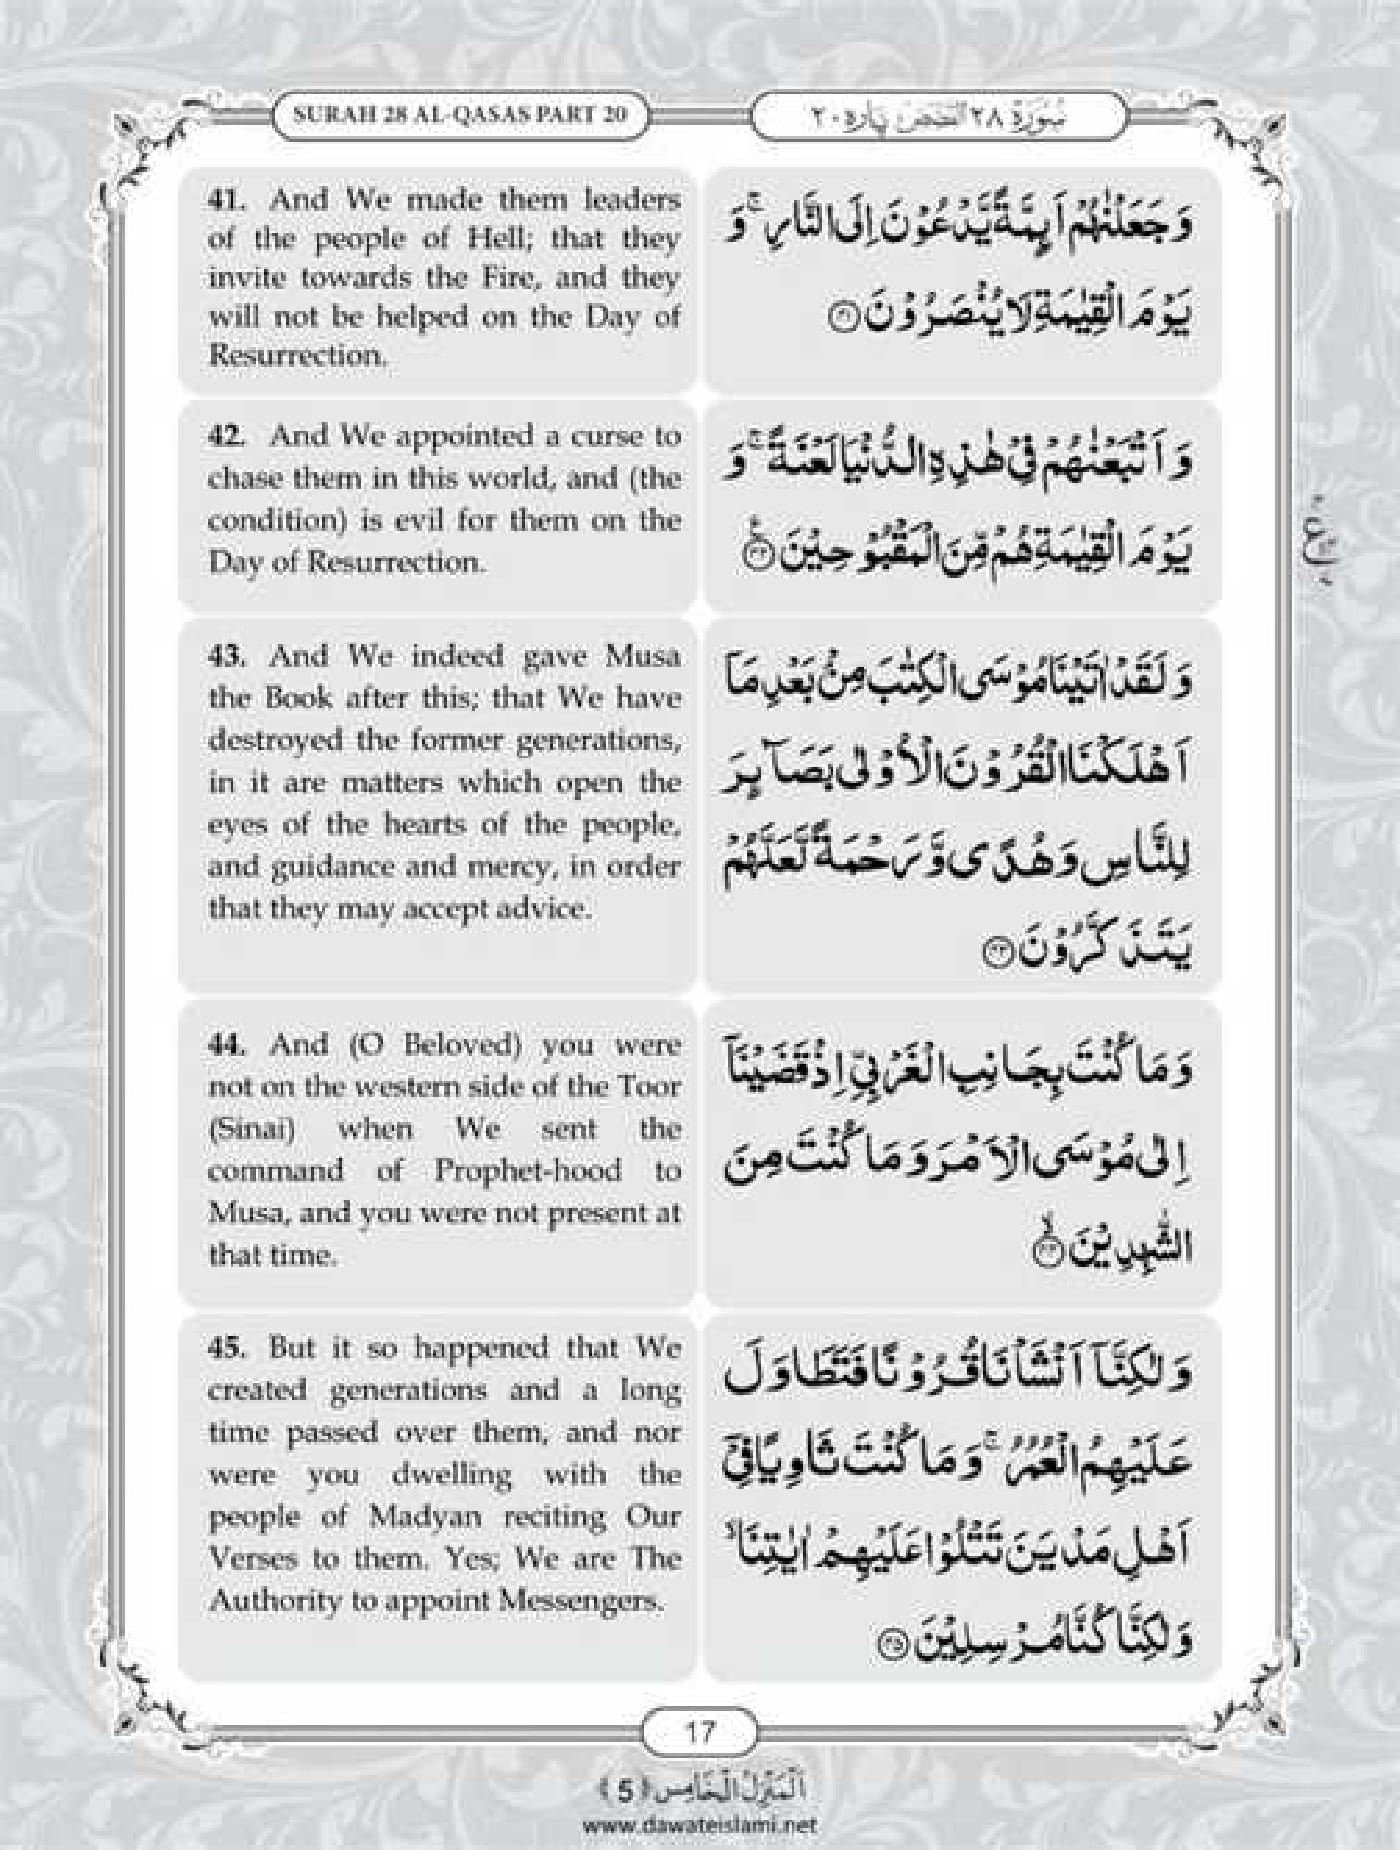 SURAH 28 AL-QASAS PART 20
سُوْرَة ٢٨ القصص پاره ٢٠
41. And We made them leaders
of the people of Hell; that they
invite towards the Fire, and they
will not be helped on the Day of
Resurrection.
وَجَعَلْنٰهُمْ اَىِٕمَّةً یَّدْعُوْنَ اِلَى النَّارِ ۚ وَ
یَوْمَ الْقِیٰمَةِ لَا یُنْصَرُوْنَ ﴿۴۱﴾
42. And We appointed a curse to
chase them in this world, and (the
condition) is evil for them on the
Day of Resurrection.
وَ اَتْبَعْنٰهُمْ فِیْ هٰذِهِ الدُّنْیَا لَعْنَةً ۚ وَ
یَوْمَ الْقِیٰمَةِ هُمْ مِّنَ الْمَقْبُوْحِیْنَ ﴿۴۲﴾
43. And We indeed gave Musa
the Book after this; that We have
destroyed the former generations,
in it are matters which open the
eyes of the hearts of the people,
and guidance and mercy, in order
that they may accept advice.
وَ لَقَدْ اٰتَیْنَا مُوْسَى الْكِتٰبَ مِنْۢ بَعْدِ مَاۤ
اَهْلَكْنَا الْقُرُوْنَ الْاُوْلٰى بَصَآىِٕرَ
لِلنَّاسِ وَ هُدًى وَّ رَحْمَةً لَّعَلَّهُمْ
یَتَذَكَّرُوْنَ ﴿۴۳﴾
44. And (O Beloved) you were
not on the western side of the Toor
(Sinai) when We sent the
command of Prophet-hood to
Musa, and you were not present at
that time.
وَ مَا كُنْتَ بِجَانِبِ الْغَرْبِیِّ اِذْ قَضَیْنَاۤ
اِلٰى مُوْسَى الْاَمْرَ وَ مَا كُنْتَ مِنَ
الشّٰهِدِیْنَ ﴿۴۴﴾ۙ
45. But it so happened that We
created generations and a long
time passed over them, and nor
were you dwelling with the
people of Madyan reciting Our
Verses to them. Yes; We are The
Authority to appoint Messengers.
وَ لٰكِنَّاۤ اَنْشَاْنَا قُرُوْنًا فَتَطَاوَلَ
عَلَیْهِمُ الْعُمُرُ ۚ وَ مَا كُنْتَ ثَاوِیًا فِیْۤ
اَهْلِ مَدْیَنَ تَتْلُوْا عَلَیْهِمْ اٰیٰتِنَا ۙ
وَ لٰكِنَّا كُنَّا مُرْسِلِیْنَ ﴿۴۵﴾
17
اَلْمَنْزِلُ الْخَامِس ﴿5﴾
www.dawateislami.net